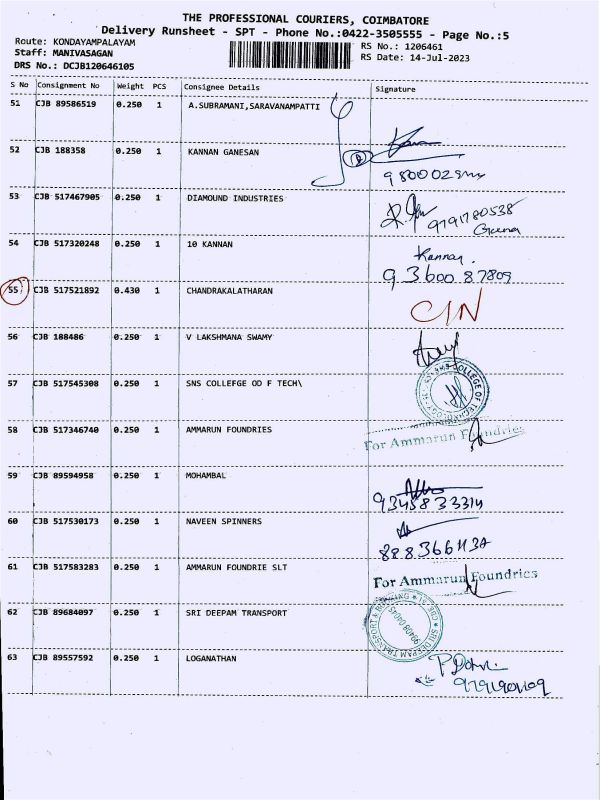 THE PROFESSIONAL COURIERS, COIMBATORE
Delivery Runsheet - SPT - Phone No.:0422-3505555 - Page No.:5
Route: KONDAYAMPALAYAM
Staff: MANIVASAGAN
DRS No.: DCJB120646105
RS No.: 1206461
RS Date: 14-Jul-2023
S No Consignment No Weight PCS Consignee Details Signature
51 CJB 89586519 0.250 1 A.SUBRAMANI,SARAVANAMPATTI
52 CJB 188358 0.250 1 KANNAN GANESAN
53 CJB 517467905 0.250 1 DIAMOUND INDUSTRIES
9791780538
54 CJB 517320248 0.250 1 10 KANNAN
Kannan.
93600 87809
55 CJB 517521892 0.430 1 CHANDRAKALATHARAN
CIN
56 CJB 188486 0.250 1 V LAKSHMANA SWAMY
57 CJB 517545308 0.250 1 SNS COLLEFGE OD F TECH\
COLLEGE OF TECHNOLOGY
58 CJB 517346740 0.250 1 AMMARUN FOUNDRIES
For Ammarun Foundries
59 CJB 89594958 0.250 1 MOHAMBAL
9345833314
60 CJB 517530173 0.250 1 NAVEEN SPINNERS
61 CJB 517583283 0.250 1 AMMARUN FOUNDRIE SLT
For Ammarun Foundries
62 CJB 89684097 0.250 1 SRI DEEPAM TRANSPORT
SRI DEEPAM TRANSPORT
63 CJB 89557592 0.250 1 LOGANATHAN
9791901109